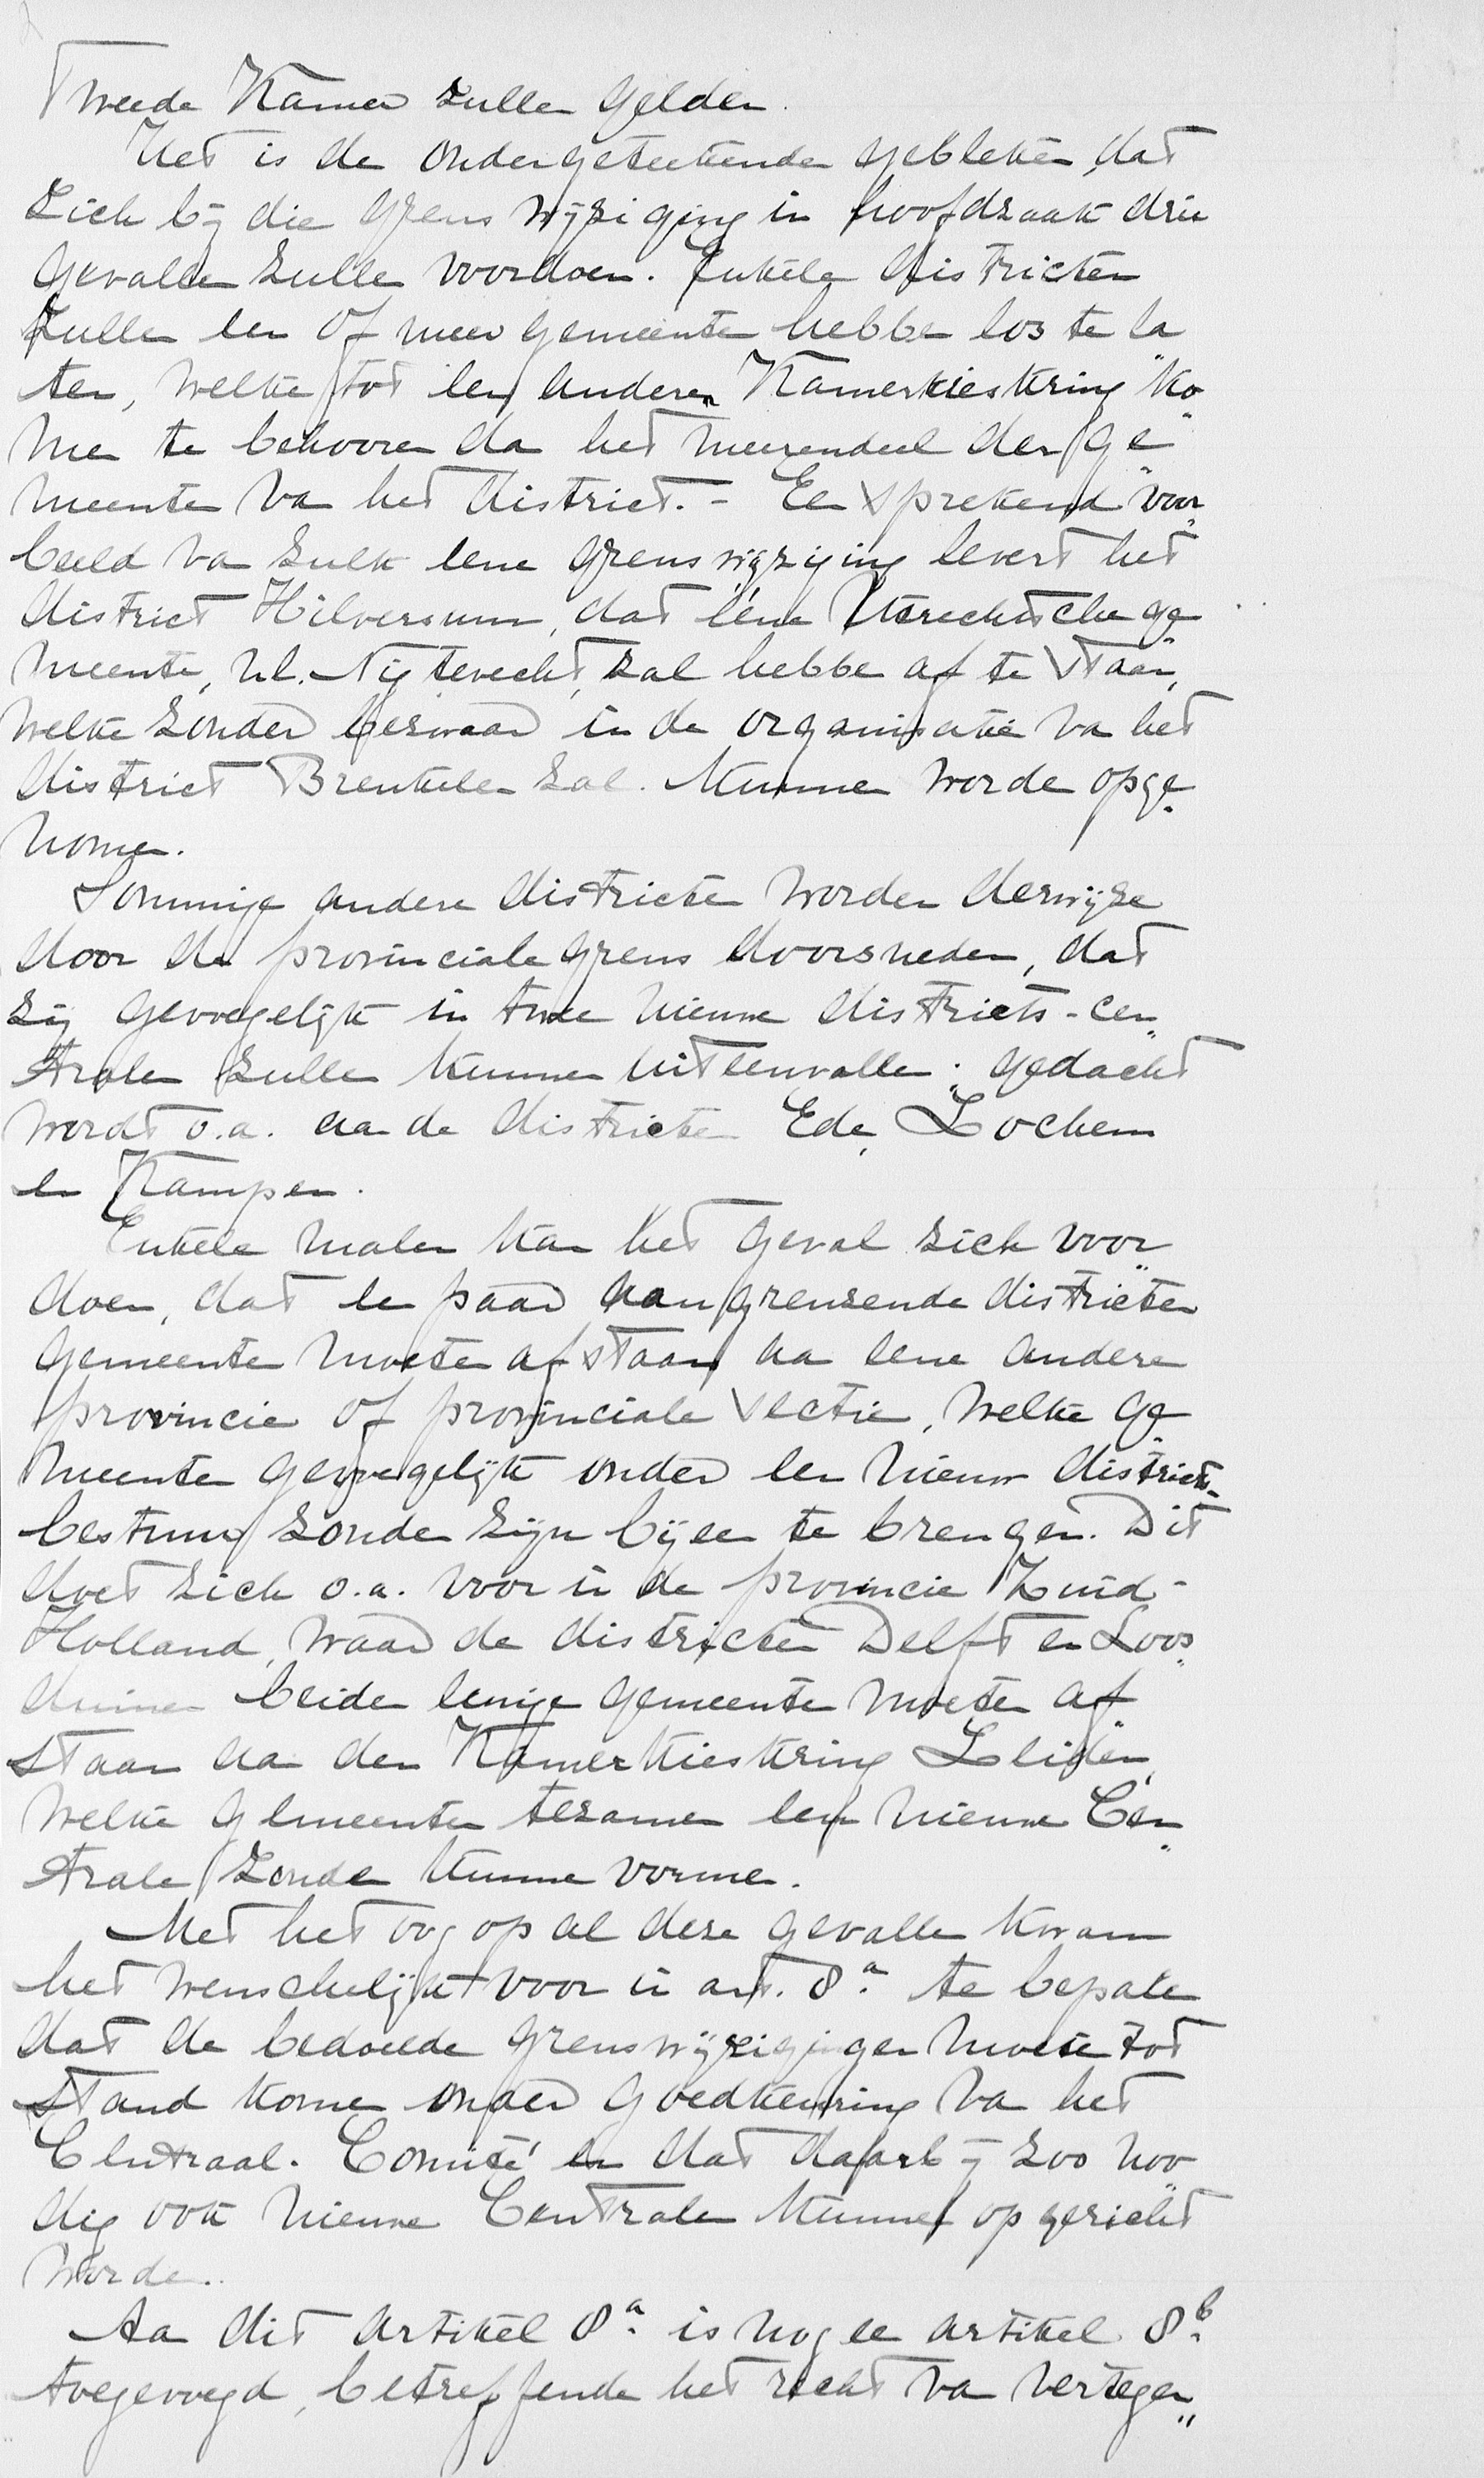 Tweede Kamer zullen gelden.
Het is de ondergeteekenden gebleken, dat
zich bij die grenswijziging in hoofdzaak drie
gevallen zullen voordoen. Enkele districten
zullen een of meer gemeenten hebben los te la
ten, welke tot een anderen Kamerkieskring ko„
men te behooren dan het meerendeel der ge„
meenten van het district. - Een sprekend voor„
beeld van zulk eene grenswijziging levert het
district Hilversum, dat ééne Utrechtsche ge„
meente, nl. Nigtevecht, zal hebben af te staan,
welke zonder bezwaar in de organisatie van het
district Breukelen zal kunnen worden opge„
nomen.
Sommige andere districten worden derwijze
door de provinciale grens doorsneden, dat
zij gevoegelijk in twee nieuwe districts-cen„
tralen zullen kunnen uiteenvallen; gedacht
wordt o.a. aan de districten Ede, Lochem
en Kampen.
Enkele malen kan het geval zich voor„
doen, dat een paar aangrenzende districten
gemeenten moeten afstaan aan eene andere
provincie of provinciale sectie, welke ge„
meenten gevoegelijk onder een nieuw districts„
bestuur zouden zijn bijeen te brengen. Dit
doet zich o.a. voor in de provincie Zuid-
Holland, waar de districten Delft en Loos„
duinen beiden eenige gemeenten moeten af„
staan aan den Kamerkieskring Leiden,
welke gemeenten tezamen een nieuwe Cen„
trale zouden kunnen vormen.
Met het oog op al deze gevallen kwam
het wenschelijk voor in art. 8a. te bepalen
dat de bedoelde grenswijzigingen moeten tot
stand komen onder goedkeuring van het
Centraal-Comité en dat daarbij zoo noo„
dig ook nieuwe Centralen kunnen opgericht
worden.
Aan dit artikel 8a. is nog een artikel 8b.
toegevoegd, betreffende het recht van vertegen„